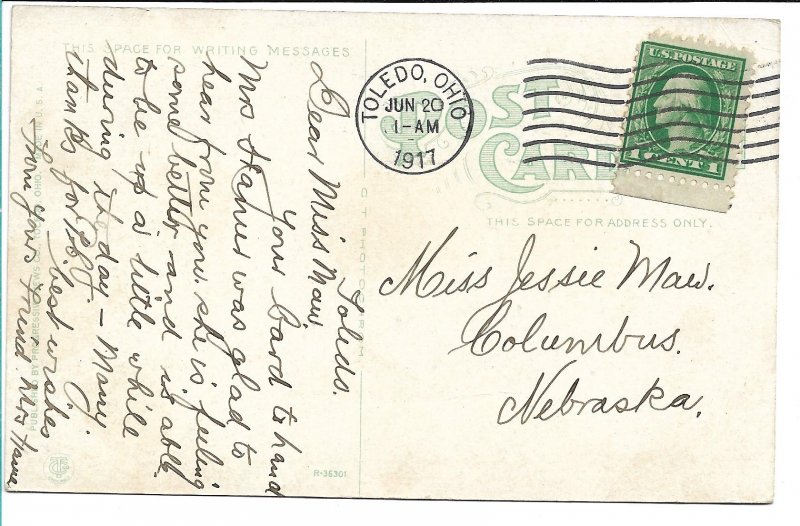 THIS SPACE FOR WRITING MESSAGES
Toledo.
Dear Miss Maw
Your Card to hand
Mrs was glad to
hear from you. she is feeling
some better and is able
to be up a little while
during the day – Many
thanks for best wishes
from yours friend Mrs
PUBLISHED BY PROGRESSIVE NEWS CO., TOLEDO, OHIO. U.S.A.
R-36301
TOLEDO, OHIO
JUN 20
1-AM
1917
POST
CARD
U.S. POSTAGE
1 CENT 1
THIS SPACE FOR ADDRESS ONLY.
Miss Jessie Maw.
Columbus.
Nebraska.